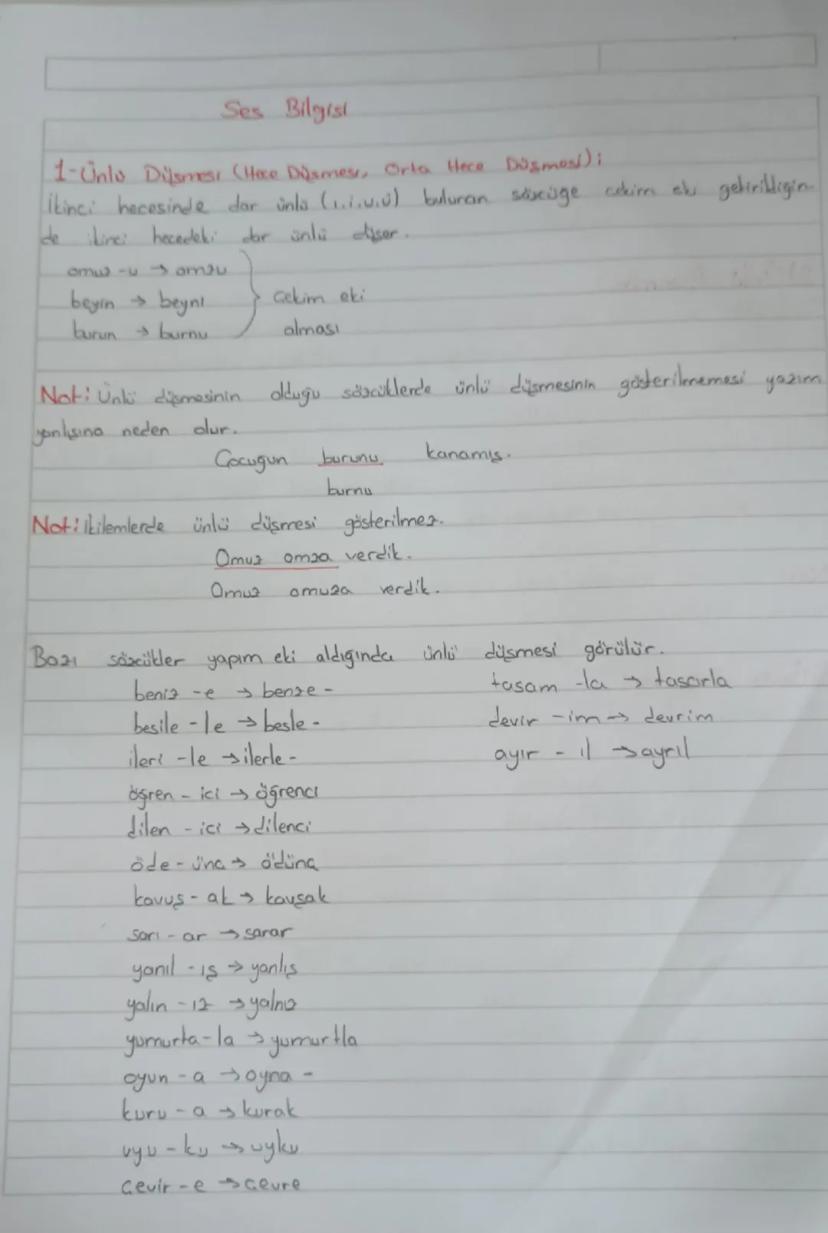 Ses Bilgisi
1-Ünlü Düşmesi (Hece Düşmesi, Orta Hece Düşmesi);
İkinci hecesinde dar ünlü (ı,i,u,ü) bulunan sözcüğe çekim eki getirildiğin
de ikinci hecedeki dar ünlü düşer.
omuz -u → omzu
beyin → beyni } çekim eki
burun → burnu alması
Not: Ünlü düşmesinin olduğu sözcüklerde ünlü düşmesinin gösterilmemesi yazım
yanlışına neden olur.
Çocuğun burunu kanamış.
burnu
Not: İkilemlerde ünlü düşmesi gösterilmez.
Omuz omza verdik.
Omuz omuza verdik.
Bazı sözcükler yapım eki aldığında ünlü düşmesi görülür.
beniz -e → benze - tasam -la → tasarla
besile -le → besle - devir -im → devrim
ileri -le → ilerle - ayır - ıl → ayrıl
öğren - ici → öğrenci
dilen - ici → dilenci
öde - ünç → ödünç
kavuş - ak → kavşak
sarı - ar → sarar
yanıl - ış → yanlış
yalın - ız → yalnız
yumurta-la → yumurtla
oyun - a → oyna -
kuru - a → kurak
uyu - ku → uyku
çevir - e → çevre